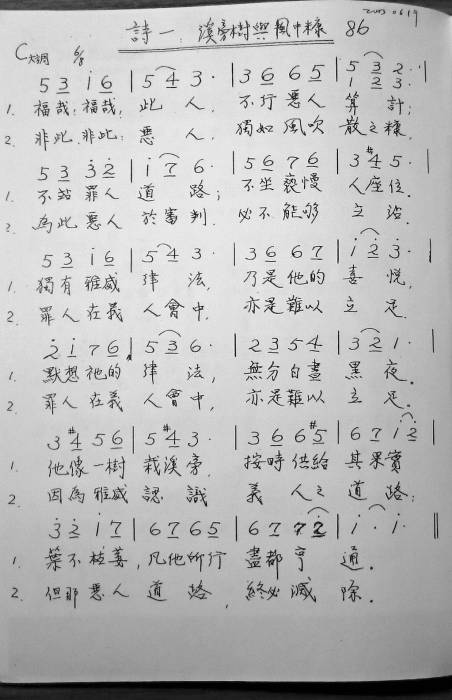 2003 06 19
詩一：溪旁樹與風中糠 86
C大調 6/8
5 3 1 6 | 5 4 3 · | 3 6 6 5 | 5 3 2 · |
1 2 3 ·
1. 福哉，福哉，此人， 不行惡人算計；
2. 非此，非此，惡人， 獨如風吹散之糠，
5 3 3 2 | 1 7 6 · | 5 6 7 6 | 3 #4 5 · |
1. 不站罪人道路； 不坐褻慢人座位．
2. 為此惡人於審判 必不能够立沾．
5 3 1 6 | 5 4 3 · | 3 6 6 7 | 1 2 3 · |
1. 獨有雅威律法， 乃是他的喜悅，
2. 罪人在義人會中， 亦是難以立足．
2 1 7 6 | 5 3 6 · | 2 3 5 4 | 3 2 1 · |
1. 默想祂的律法， 無分白晝黑夜．
2. 罪人在義人會中， 亦是難以立足．
3 #4 5 6 | 5 #4 3 · | 3 6 6 #5 | 6 7 1 2 |
1. 他像一樹栽溪旁， 按時供給其果實
2. 因為雅威認識 義人之道路；
3 2 1 7 | 6 7 6 5 | 6 7 7 2 | 1 · 1 · ||
1. 葉不枝萎，凡他所行盡都亨通．
2. 但那惡人道路，終必滅除．